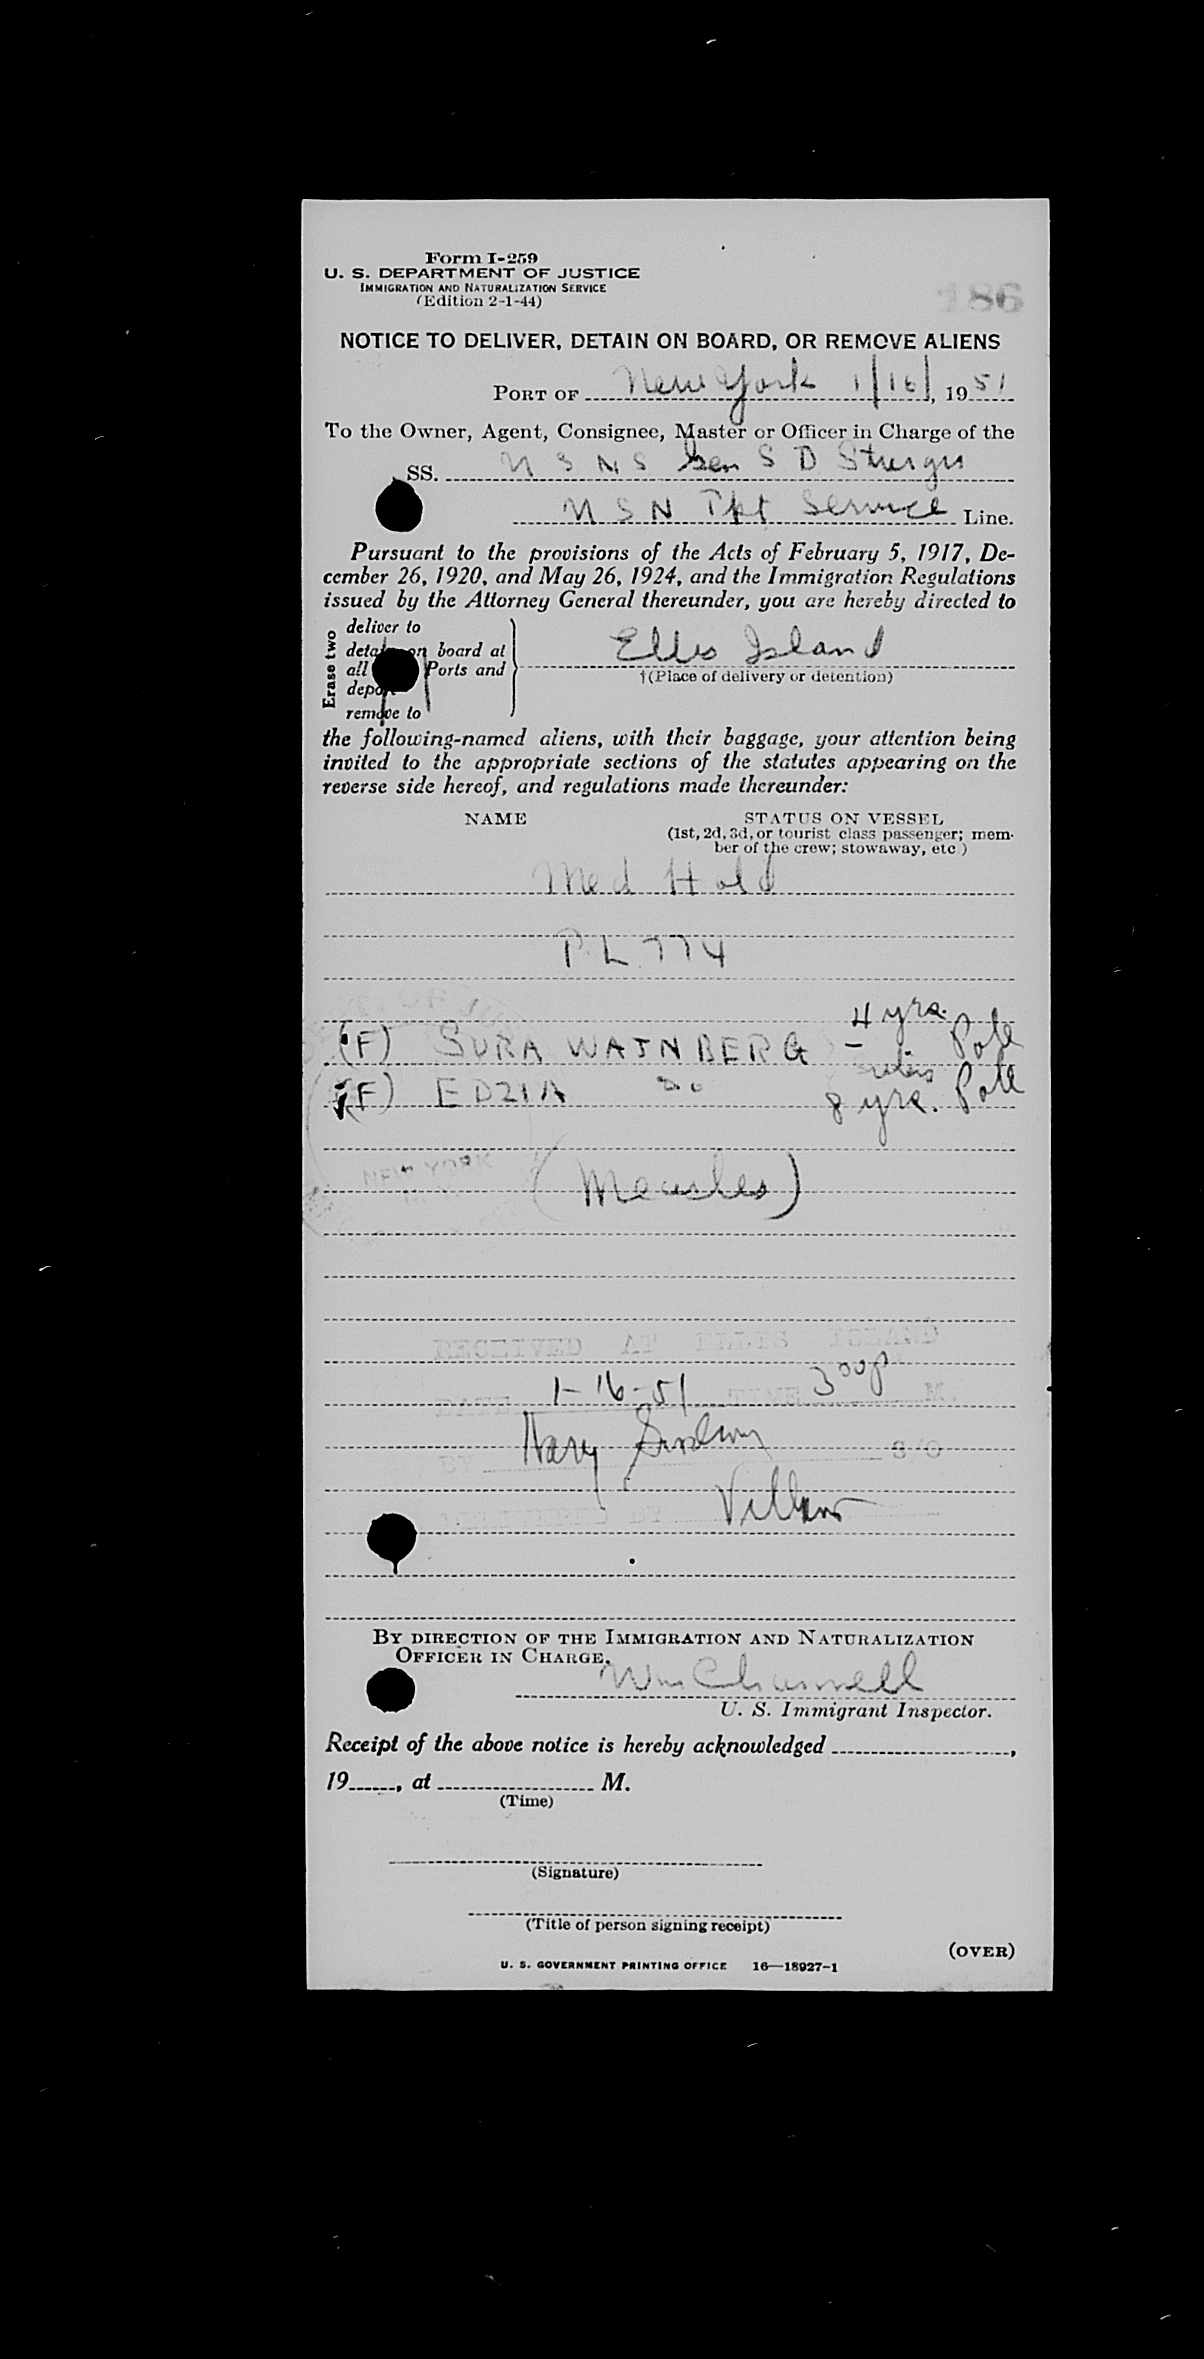 Form I-259
U. S. DEPARTMENT OF JUSTICE
IMMIGRATION AND NATURALIZATION SERVICE
(Edition 2-1-44)
186
NOTICE TO DELIVER, DETAIN ON BOARD, OR REMOVE ALIENS
PORT OF New York 1/16/, 1951
To the Owner, Agent, Consignee, Master or Officer in Charge of the
SS. U S N S Gen S D Sturgis
U S N Tpt Service Line.
Pursuant to the provisions of the Acts of February 5, 1917, De-
cember 26, 1920, and May 26, 1924, and the Immigration Regulations
issued by the Attorney General thereunder, you are hereby directed to
Erase two
deliver to
board at
all Ports and
remove to
Ellis Island
†(Place of delivery or detention)
the following-named aliens, with their baggage, your attention being
invited to the appropriate sections of the statutes appearing on the
reverse side hereof, and regulations made thereunder:
NAME
STATUS ON VESSEL
(1st, 2d, 3d, or tourist class passenger; mem-
ber of the crew; stowaway, etc.)
Med Hold
P.L. 774
(F) SURA WAJNBERG - 4 yrs. Pole
sisters
(F) EDZIA Do 8 yrs. Pole
NEW YORK
(Measles)
RECEIVED AT ELLIS ISLAND
DATE 1-16-51 TIME 3 00 P M.
BY Harry S/O
DELIVERED BY
BY DIRECTION OF THE IMMIGRATION AND NATURALIZATION
OFFICER IN CHARGE.
Wm
U. S. Immigrant Inspector.
Receipt of the above notice is hereby acknowledged ,
19 , at M.
(Time)
(Signature)
(Title of person signing receipt)
(OVER)
U. S. GOVERNMENT PRINTING OFFICE 16—18927-1